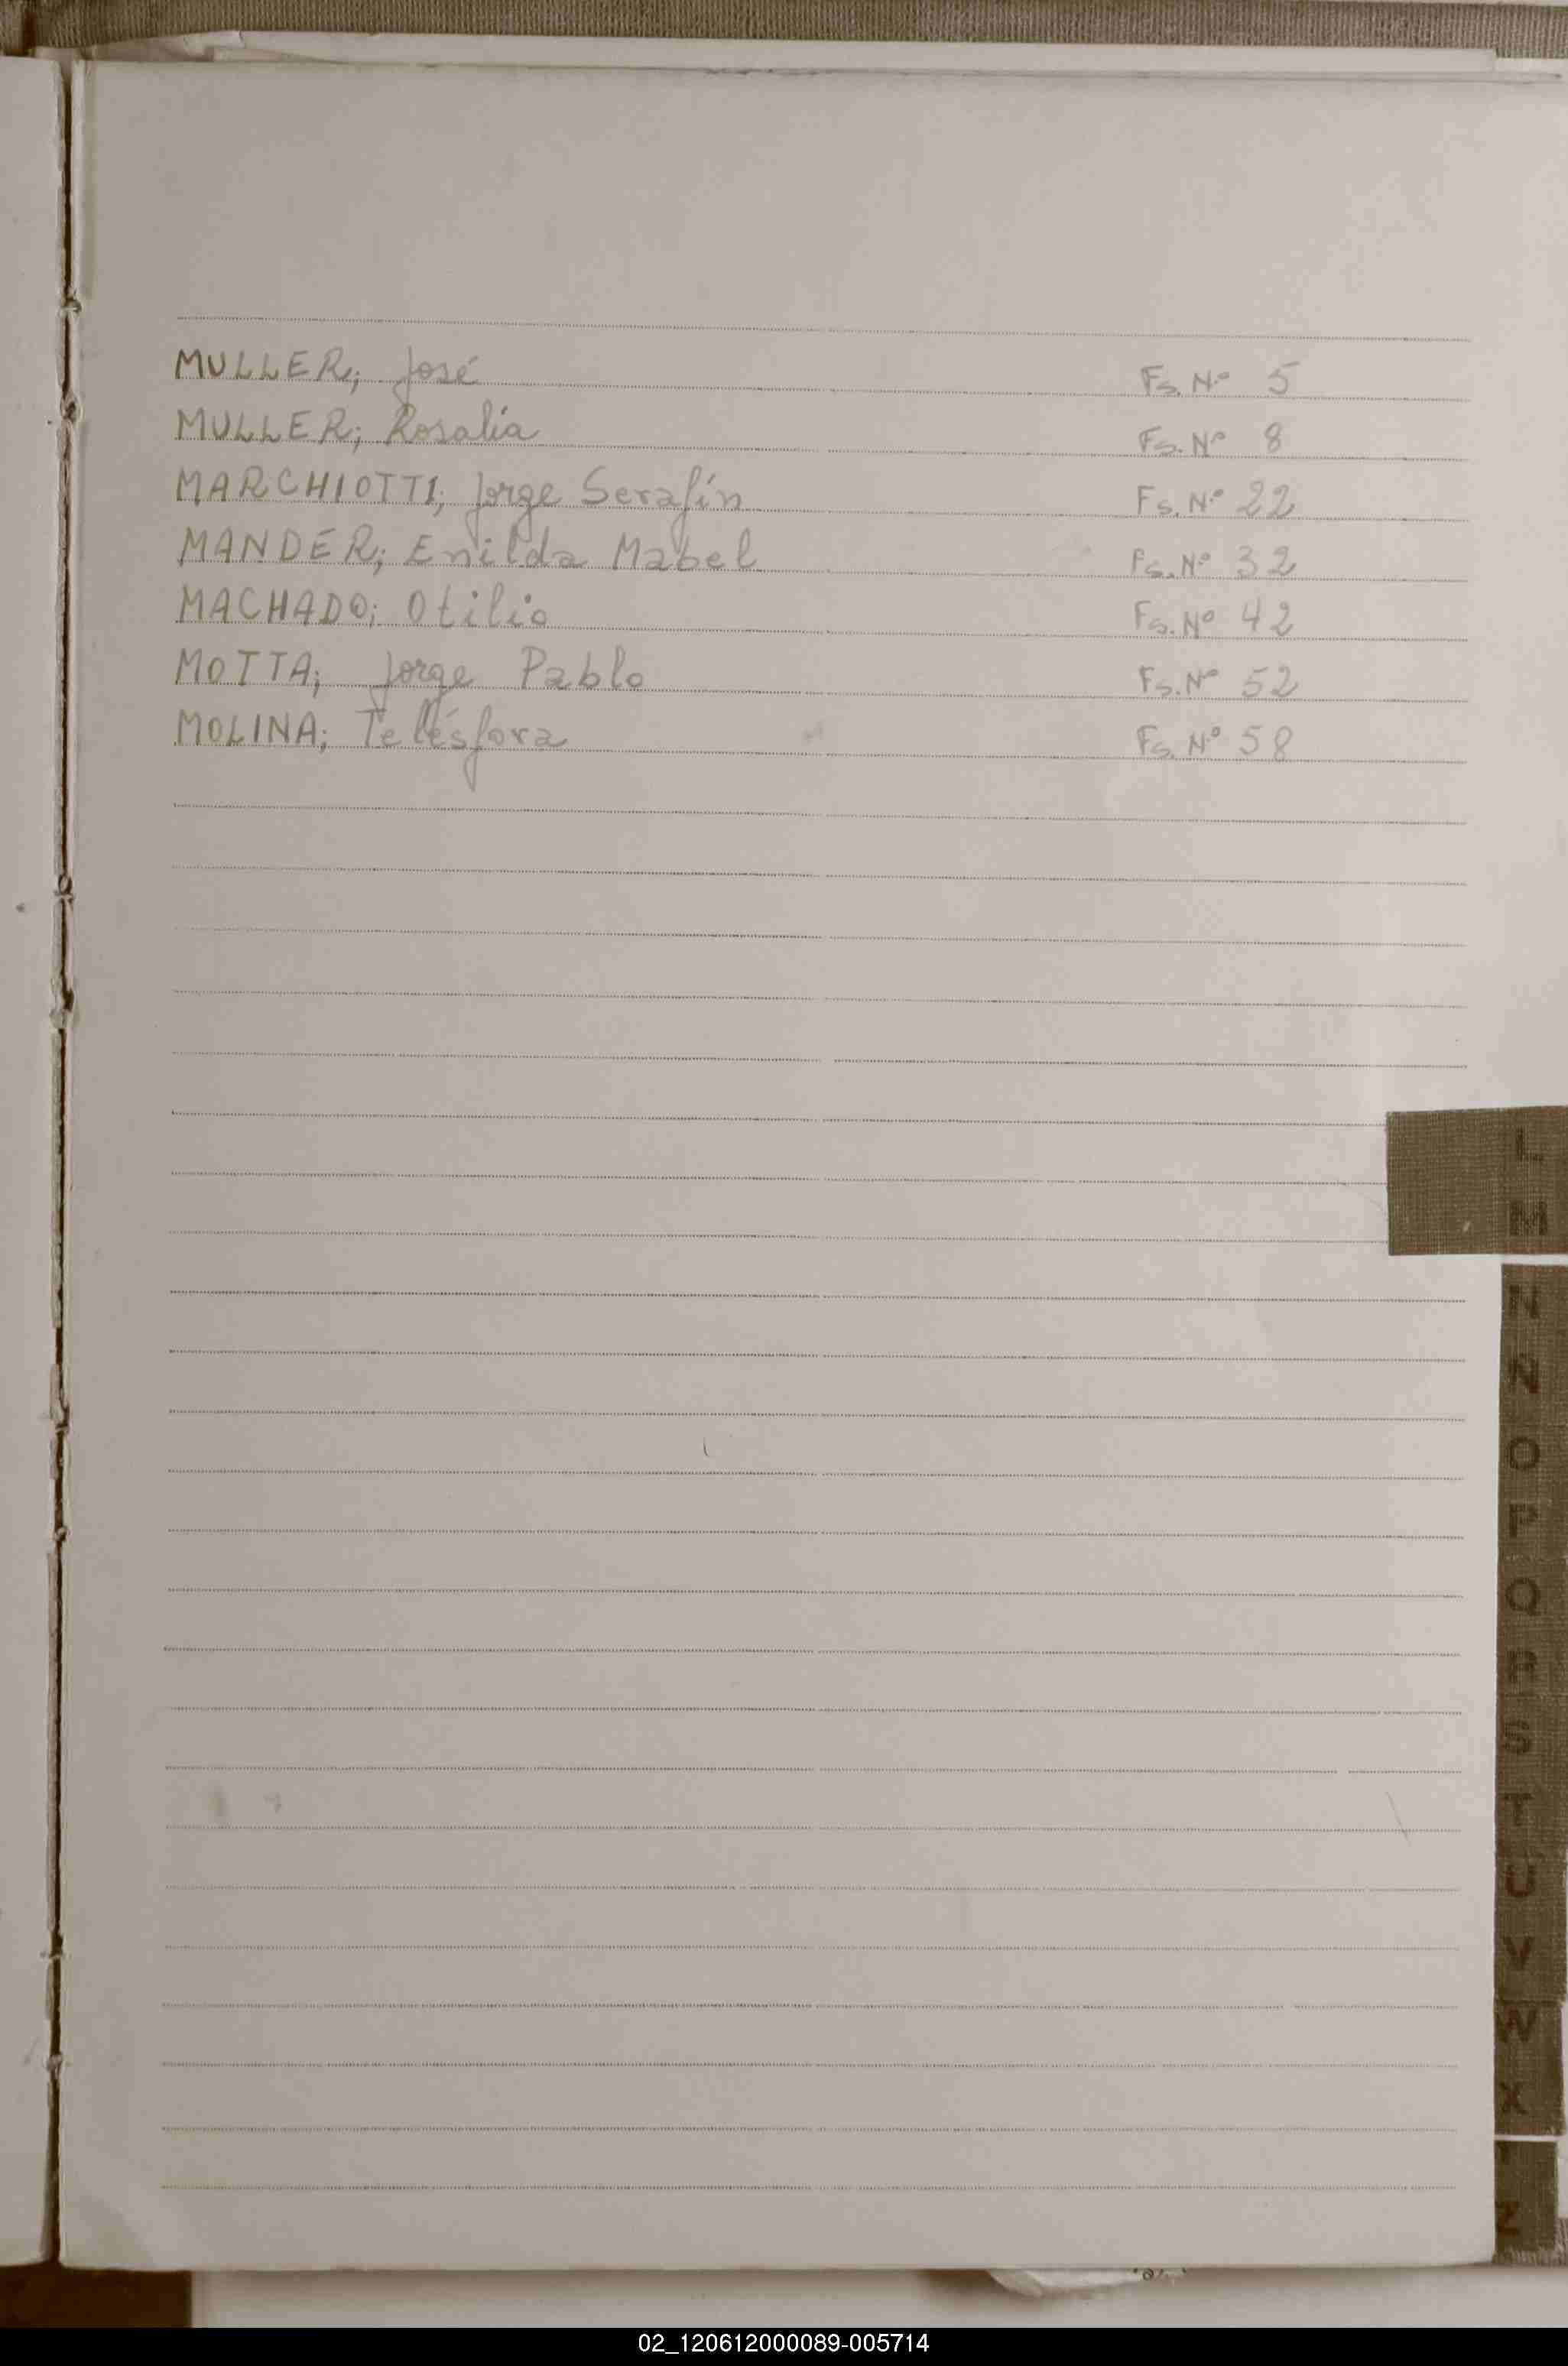 MULLER; José Fs. Nº 5
MULLER; Rosalía Fs. Nº 8
MARCHIOTTI; Jorge Serafín Fs. Nº 22
MANDER; Enilda Mabel Fs. Nº 32
MACHADO; Otilio Fs. Nº 42
MOTTA; Jorge Pablo Fs. Nº 52
MOLINA; Telésfora Fs. Nº 58
L
M
N
N
O
P
Q
R
S
T
U
V
W
X
Z
02_120612000089-005714